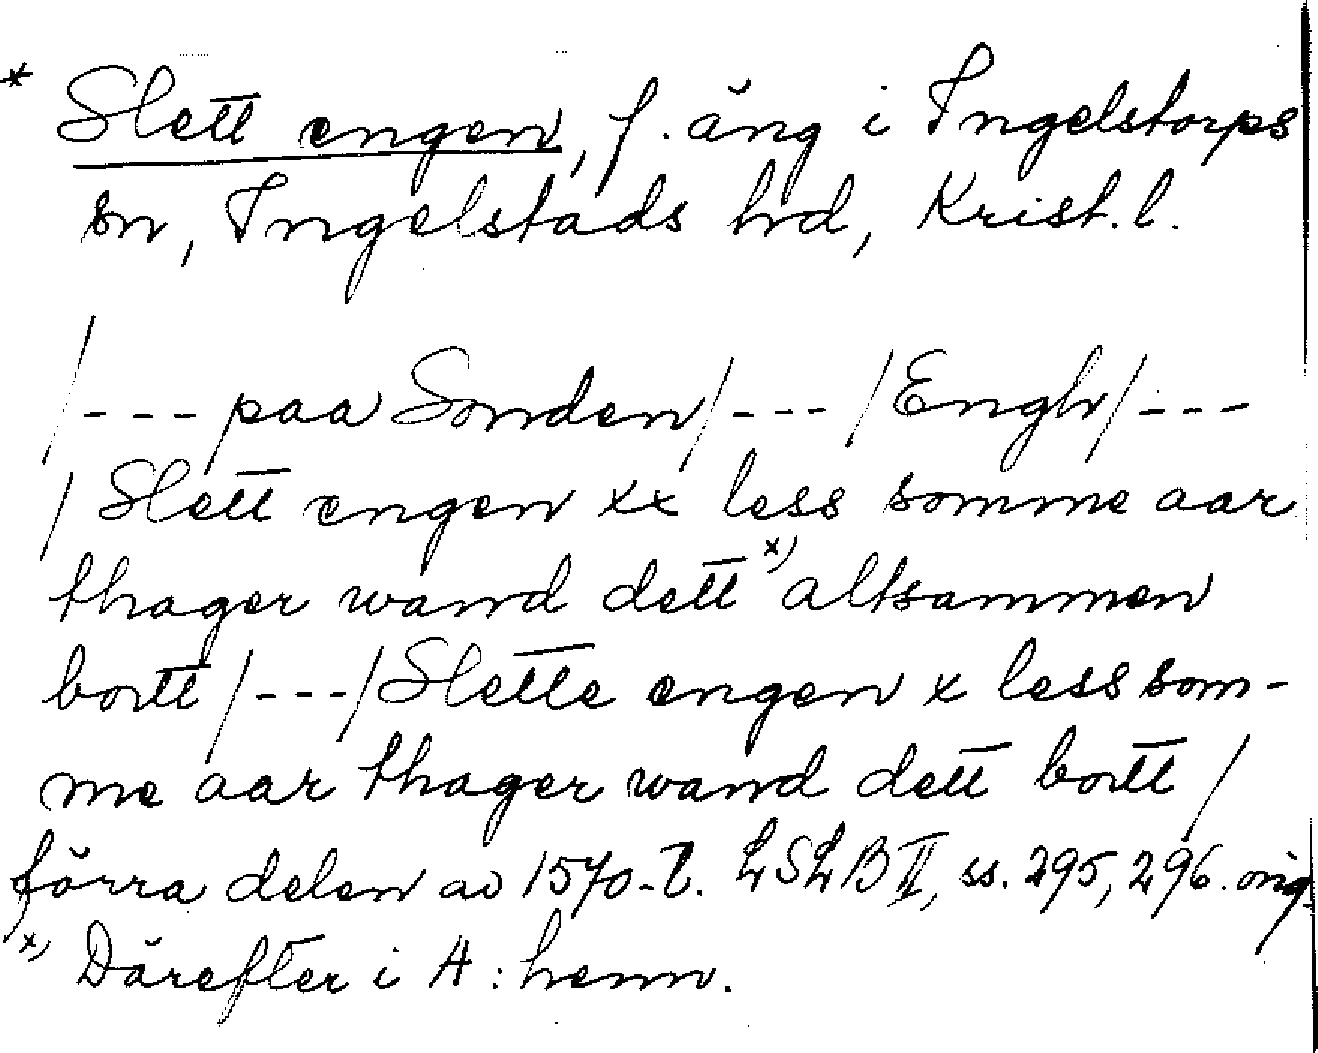 * Slett engen, f. äng i Ingelstorps
sn, Ingelstads hd, Krist. l.
/--- paa Sonden/--- /Engh/---
/ Slett engen xx less somme aar
thager wand dett x) altsammen
bortt /---/ Slette engen x less som-
me aar thager wand dett bortt /
förra delen av 1570-t. LSLB II, ss. 295, 296. orig.
x) Därefter i A: henn.